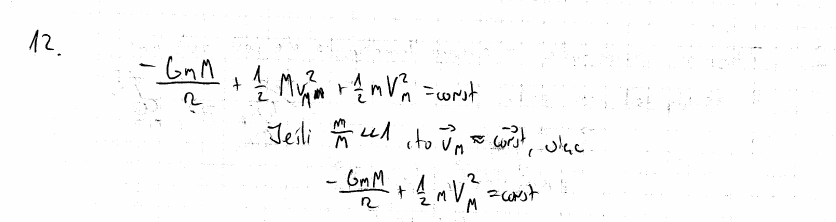 12.
-GmM/r + 1/2 M v_M^2 + 1/2 m V_m^2 = const
Jeśli m/M << 1, to \vec{v}_M ≈ \vec{const}, więc
-GmM/r + 1/2 m V_M^2 = const